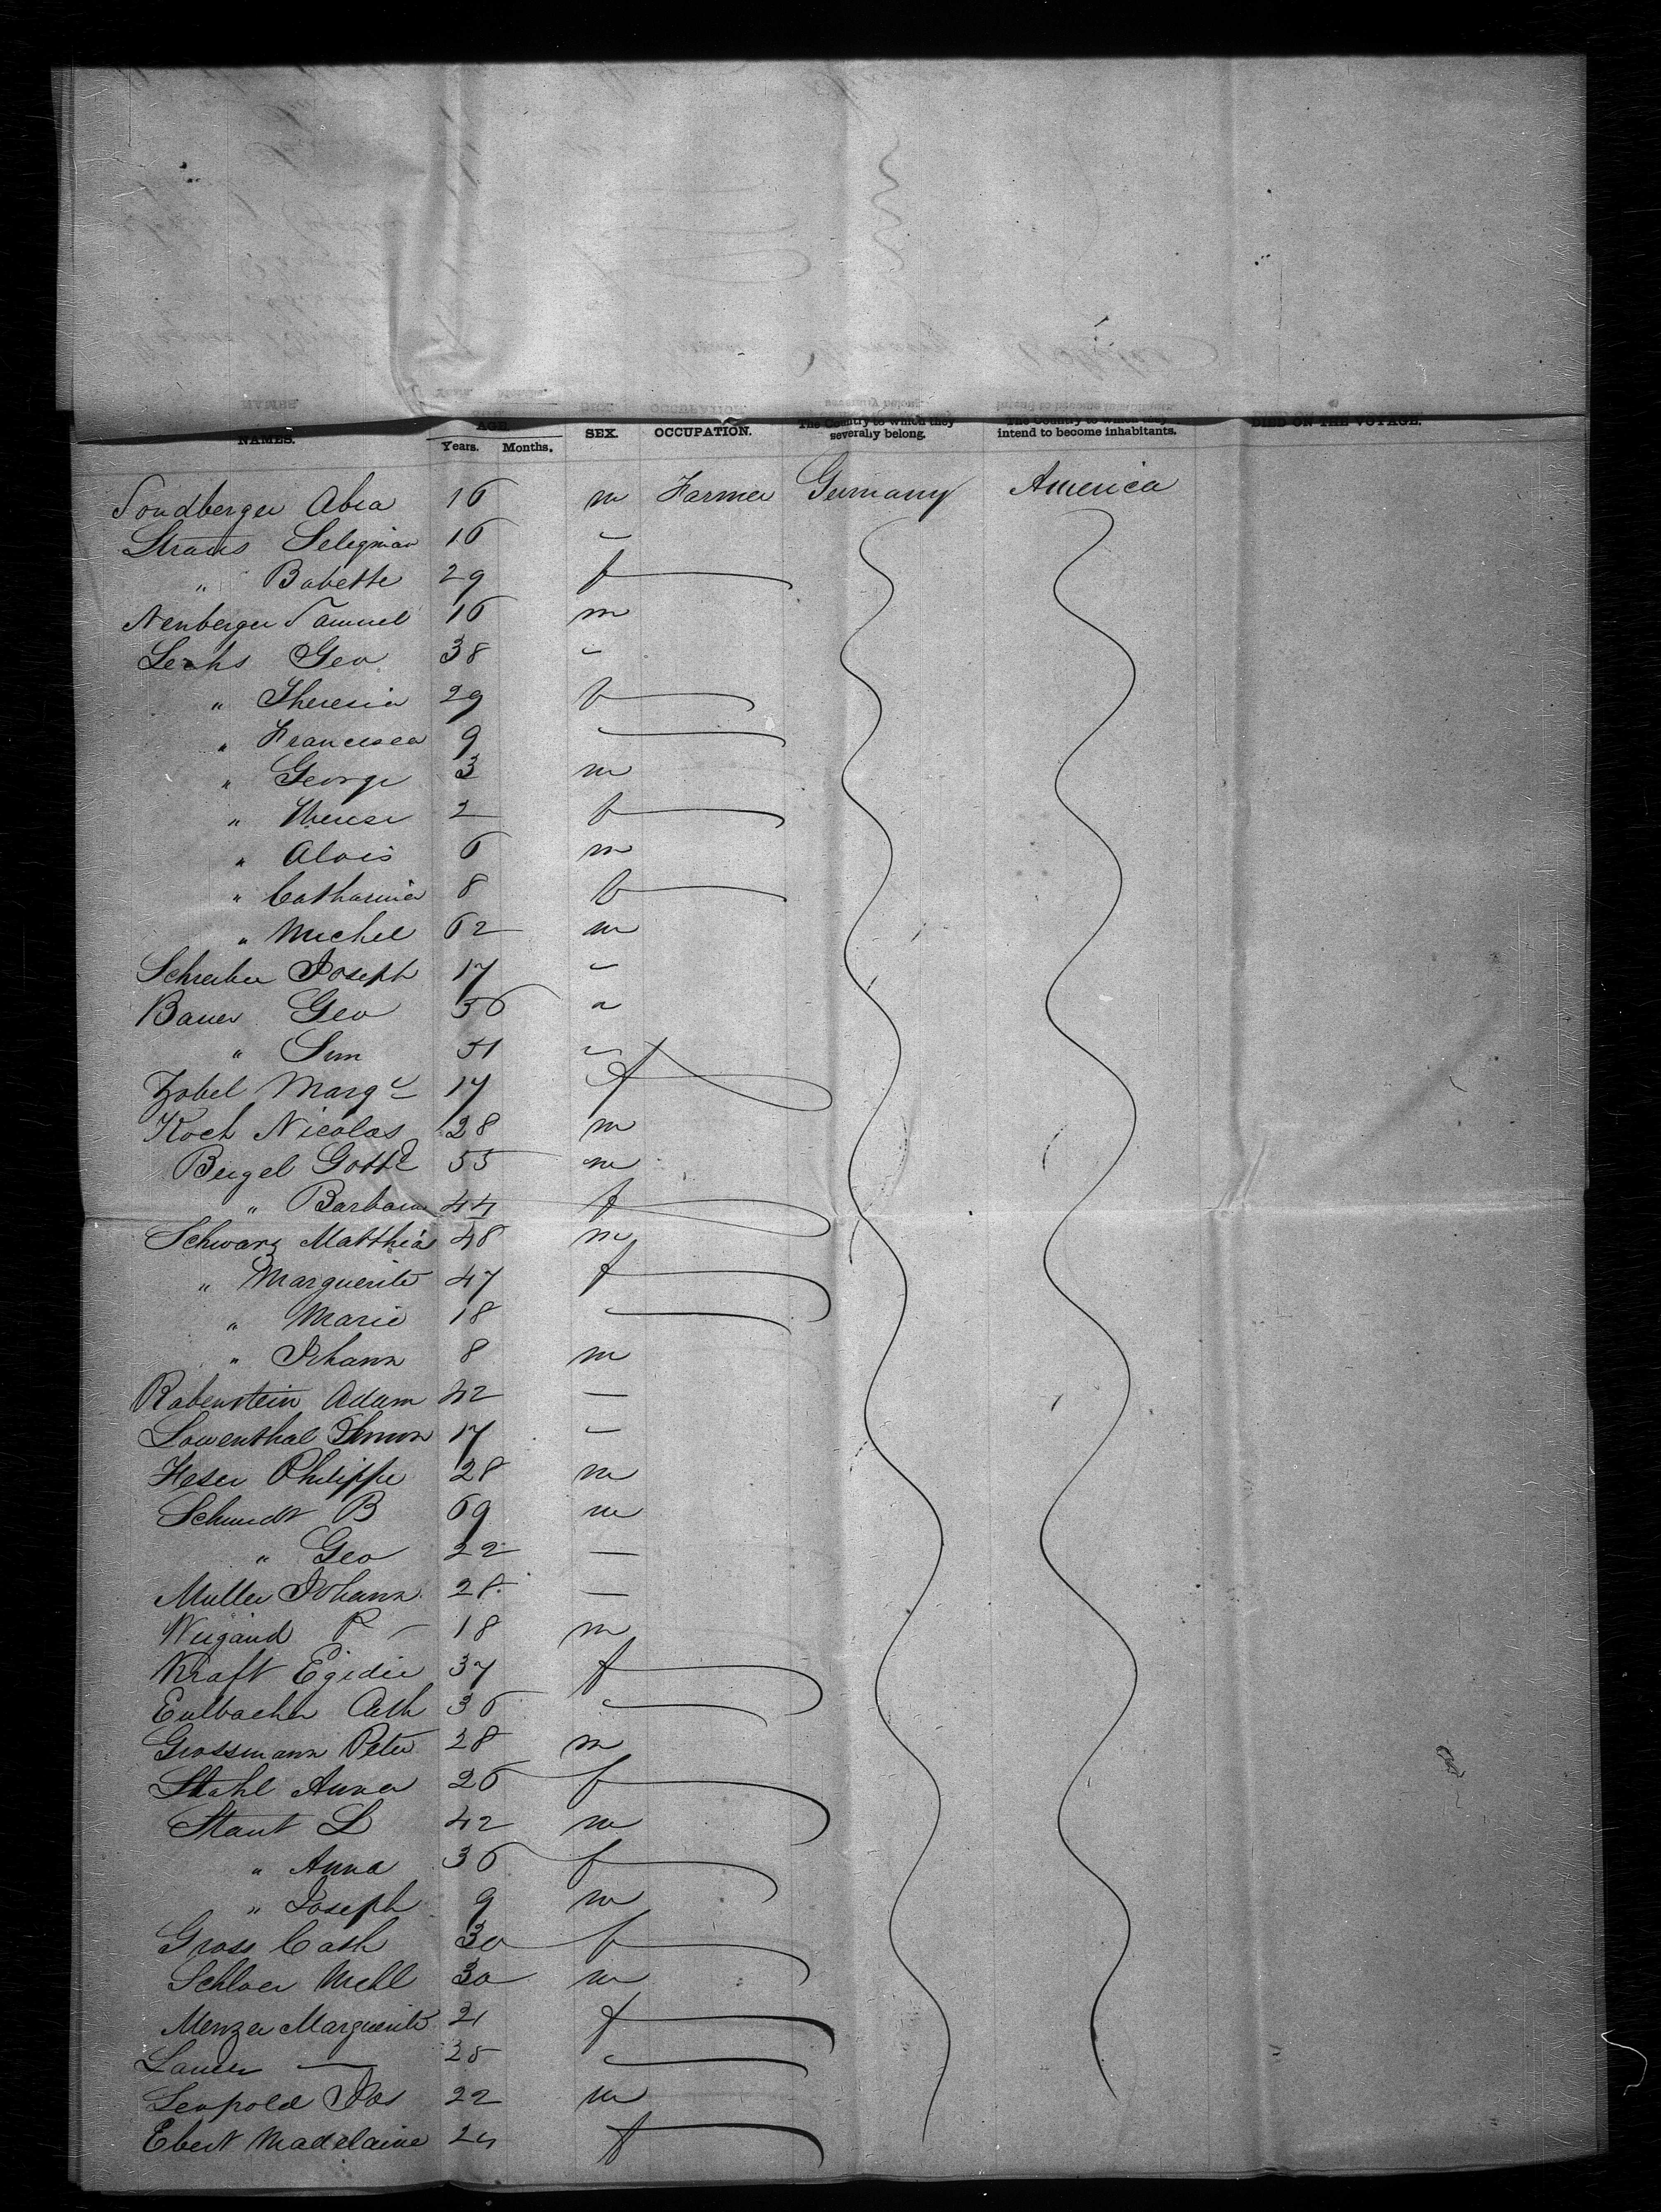 NAMES. AGE. Years. Months. SEX. OCCUPATION. The Country to which they severally belong. The Country to which they intend to become inhabitants. DIED ON THE VOYAGE.
Sondberger Abra 16 m Farmer Germany America
Straus Seligman 16 "
" Babette 29 f
Nenberger Samuel 16 m
Lechs Geo 38 "
" Theresia 29 f
" Francisca 9 "
" George 3 m
" Therese 2 f
" Alois 6 m
" Catharina 8 f
" Michel 62 m
Schreiber Joseph 17 "
Bauer Geo 36 "
" Sim 51 "
Zobel Margt 17 f
Koch Nicolas 28 m
Beigel Gottd 55 m
" Barbara 44 f
Schwarz Matthias 48 m
" Marguerite 47 f
" Marie 18 "
" Johann 8 m
Rabenstein Adam 42 —
Lowenthal Simon 17 —
Heser Philippe 28 m
Schmidt B 69 m
" Geo 22 —
Muller Johann 28 —
Weigand P — 18 m
Kraft Egidie 37 f
Eulbacher Cath 36 "
Grossmann Peter 28 m
Stahl Anna 26 f
Staut L 42 m
" Anna 36 f
" Joseph 9 m
Gross Cath 30 f
Schloer Mchl 30 m
Menzer Marguerite 21 f
Lauer — 25 "
Leopold Jos 22 m
Ebert Madelaine 24 f